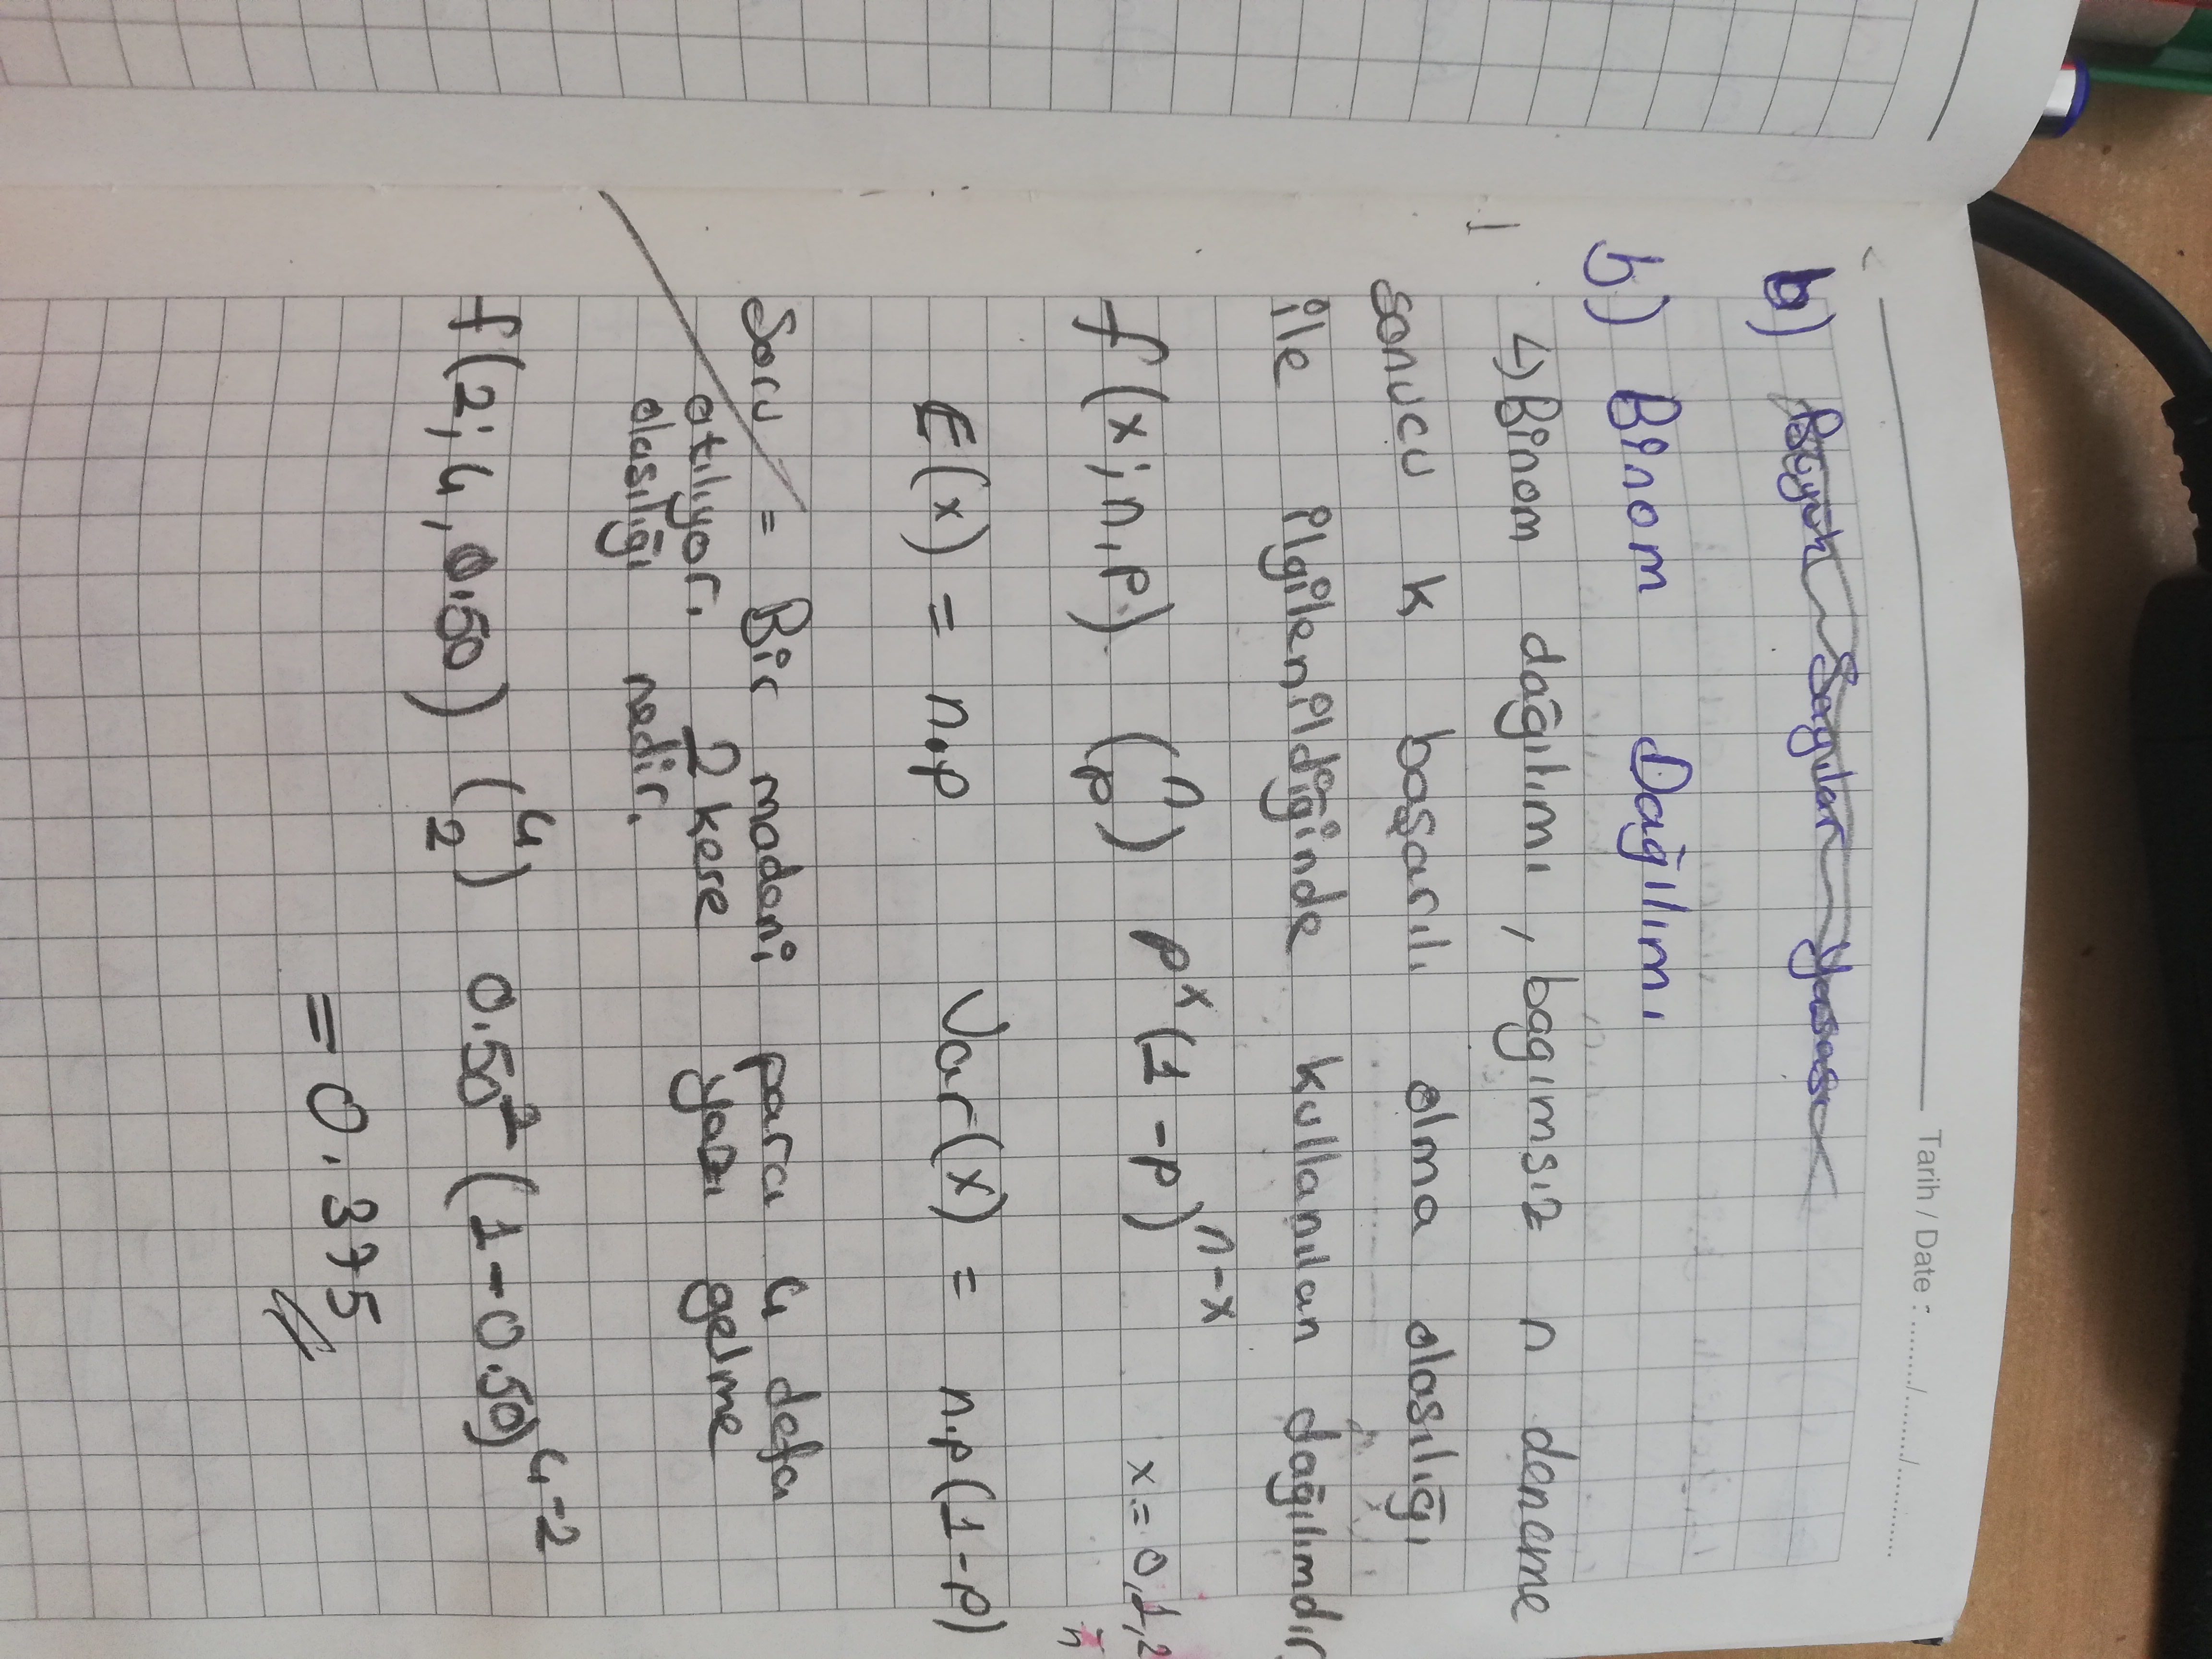 Tarih / Date : ......../......../............
b) Büyük Sayılar Yasası
b) Binom Dağılımı
↳ Binom dağılımı, bagımsız n deneme
sonucu k başarılı olma olasılığı
ile ilgilenildiğinde kullanılan dağılımdır.
f(x;n,p) (n p) p^x (1-p)^n-x x = 0,1,2
n
E(x) = n.p Var(x) = n.p(1-p)
Soru = Bir madeni para 4 defa
atılıyor. 2 kere yazı gelme
olasılığı nedir.
f(2;4,0.50) (4 2) 0.50^2 (1-0.50)^4-2
= 0.375